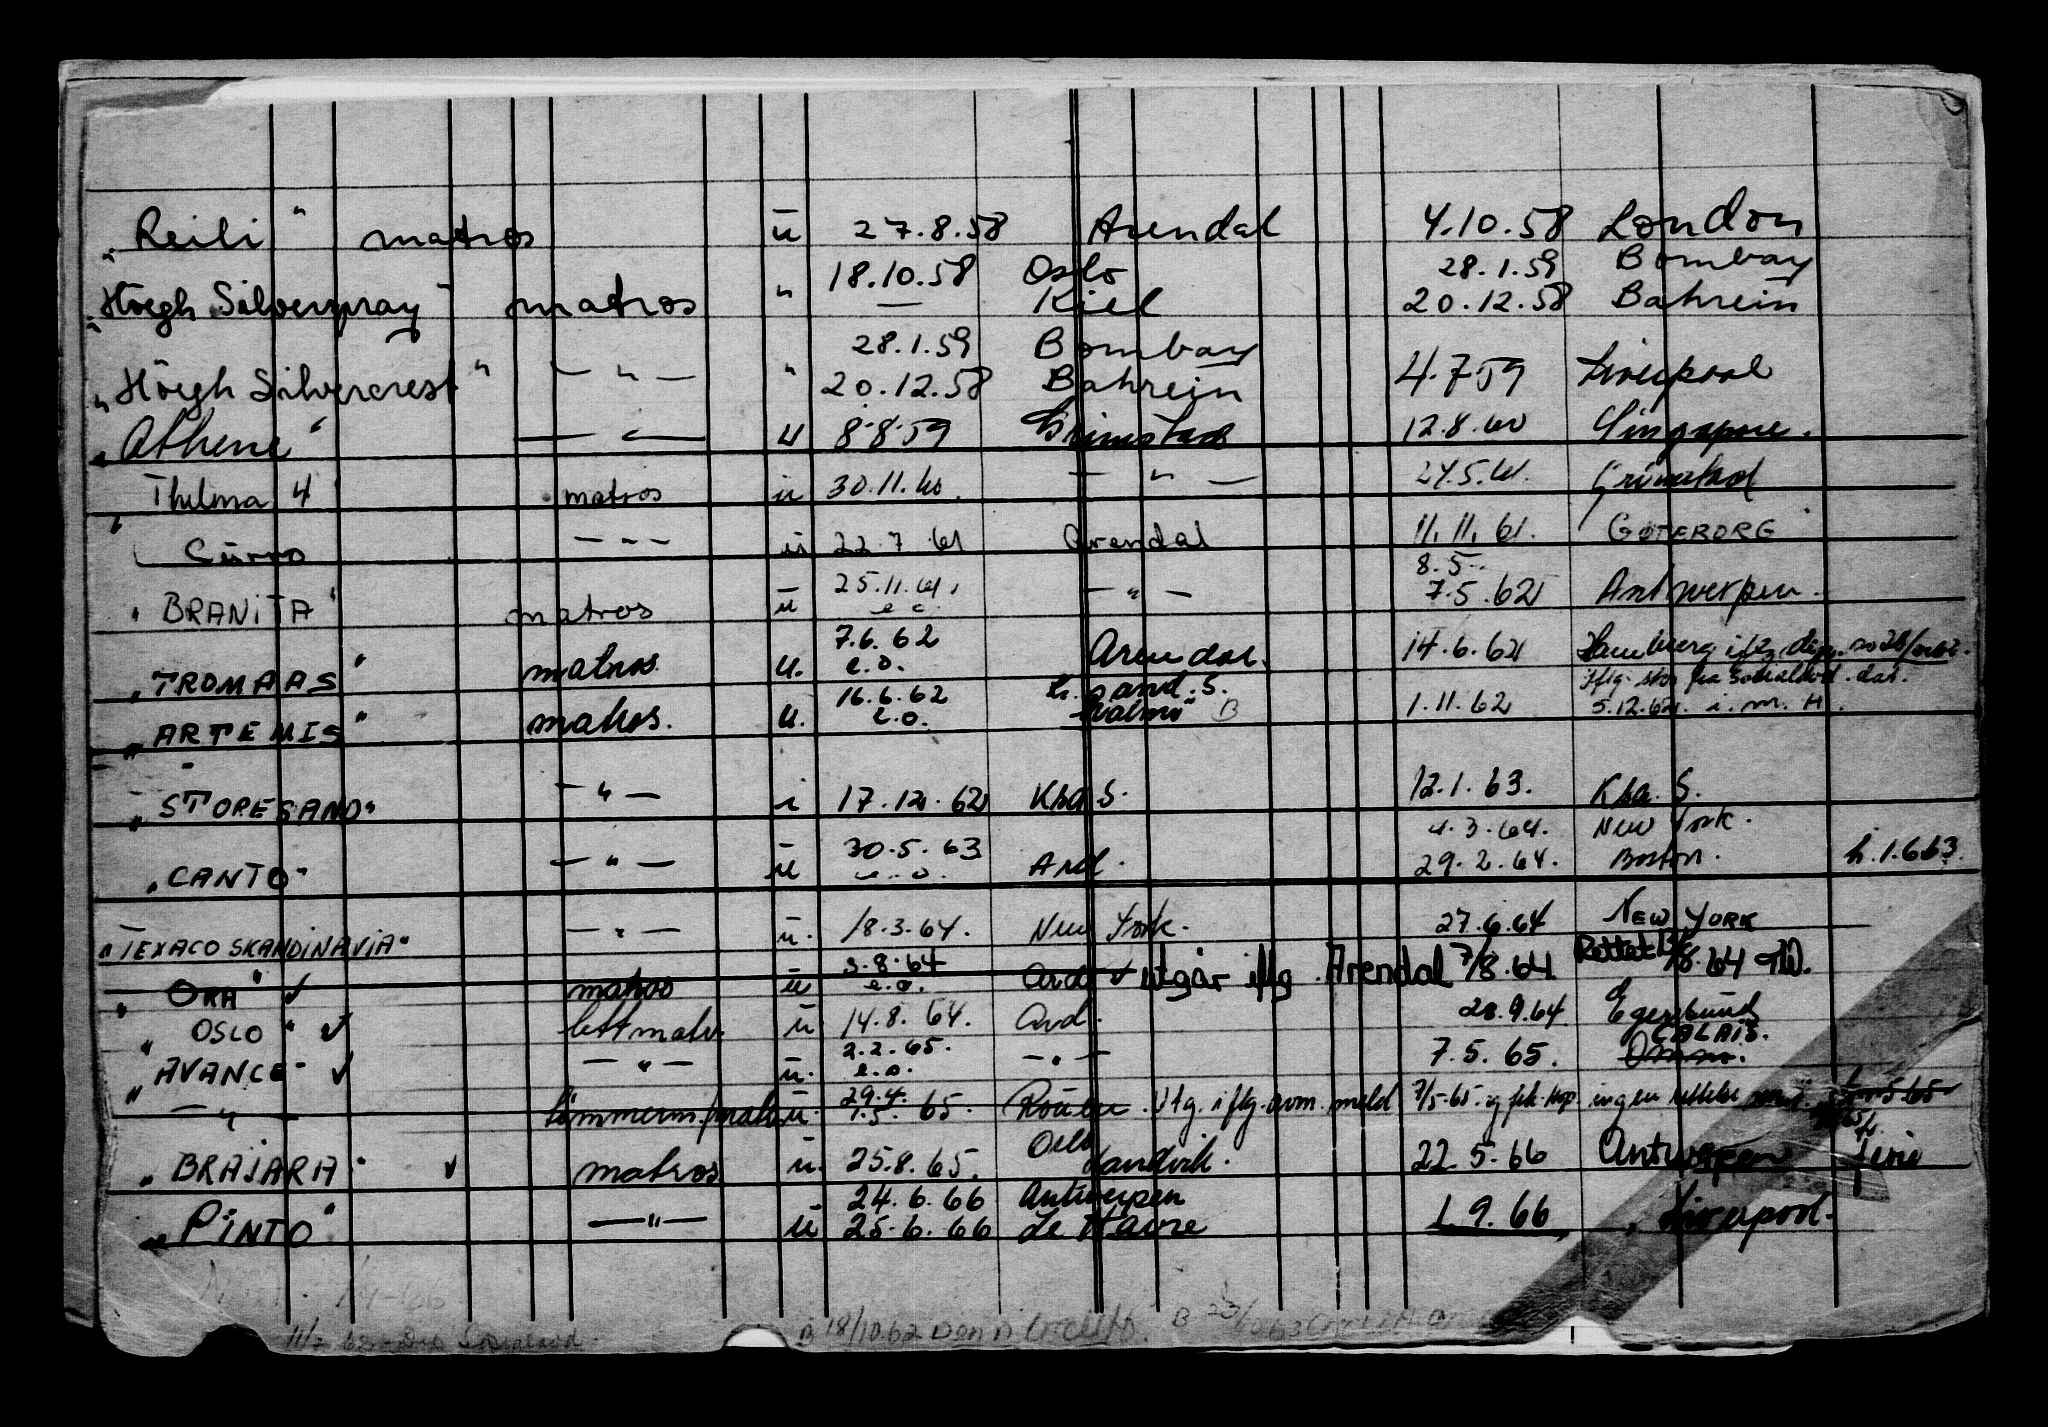 „Reili" matros ū 27.8.58 Arendal 4.10.58 London
18.10.58 Oslo 28.1.59 Bombay
„Höegh Silverspray" matros " — Kiel 20.12.58 Bahrein
28.1.59 Bombay
„Höegh Silvercrest" — " — " 20.12.58 Bahrein 4.7.59 Liverpool
„Athene" — " — u 8.8.59 Grimstad 12.8.60 Singapore.
Thelma 4 matros ū 30.11.60. — " — 24.5.61. Grimstad
„Curro — " — ū 22.7.61 Arendal 11.11.61. GÖTEBORG
8.5.
„BRANITA" matros ū 25.11.61. e.o. — " — 7.5.62 Antwerpen.
7.6.62
„TROMAAS" matros u. e.o. Arendal. 14.6.62 Hamburg
16.6.62 Kr.sand. S.
„ARTEMIS" matros. u. e.o. Malmö B 1.11.62 5.12.62. i. m. H.
„STORESAND" — " — i 17.12.62 Krsa S. 12.1.63. Krsa. S.
4.3.64. New York.
30.5.63
„CANTO" — " — ū e.o. Ard. 29.2.64. Boston. h.1.6.63.
„TEXACO SKANDINAVIA" — " — ū. 18.3.64. New York. 27.6.64 NEW YORK
3.8.64
„ORA" ✓ matros ū e.o. Ard ✓ utgår iflg. Arendal 7/8.64 Rettet /8.64
„OSLO" ✓ lettmatr. ū 14.8.64. Ard. 28.9.64 Egersund
2.2.65. CALAIS.
„AVANCE" ✓ — " — ū. e.o. — " — 7.5.65.
29.4.
„ — " — tömmerm./matr. ū. 1.5.65. Rouen. Utg. iflg. avm. meld 7/5-65. ingen rettelse
Oslo
„BRAJARA" ✓ matros ū. 25.8.65. Sandvik. 22.5.66 Antwerpen ferie
24.6.66 Antwerpen
„PINTO" — " — ū 25.6.66 Le Havre 1.9.66, Liverpool.
B 18/10.62 B